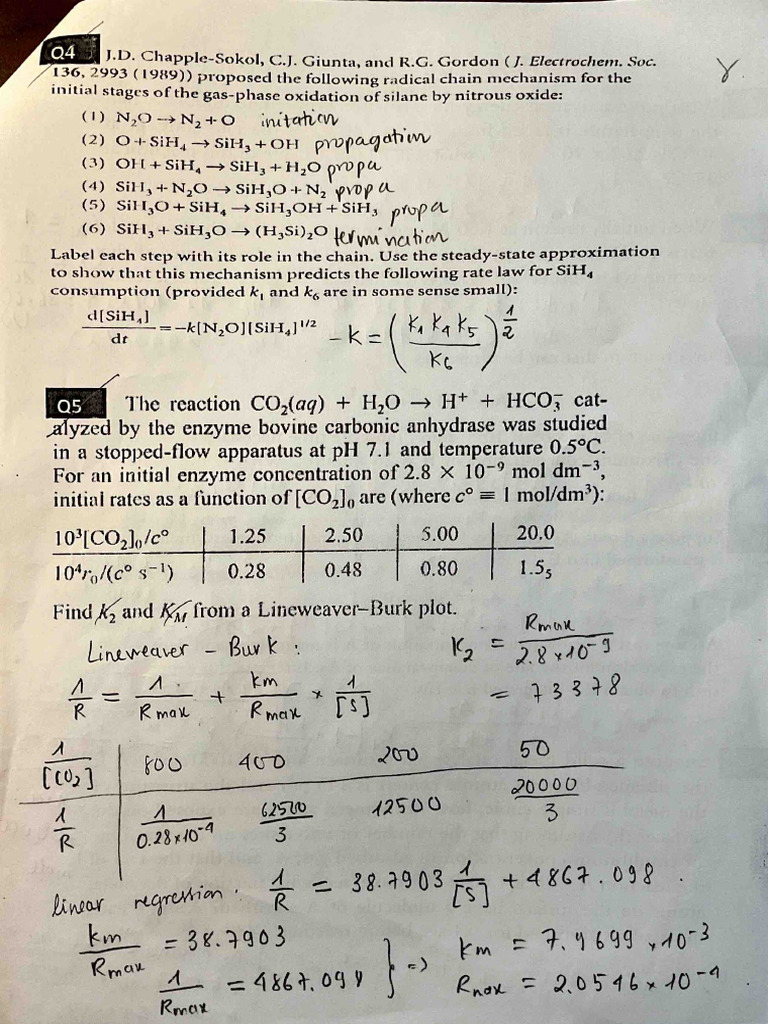 Q4 J.D. Chapple-Sokol, C.J. Giunta, and R.G. Gordon (J. Electrochem. Soc.
136, 2993 (1989)) proposed the following radical chain mechanism for the
initial stages of the gas-phase oxidation of silane by nitrous oxide:
(1) N₂O → N₂ + O initation
(2) O + SiH₄ → SiH₃ + OH propagation
(3) OH + SiH₄ → SiH₃ + H₂O propa
(4) SiH₃ + N₂O → SiH₃O + N₂ propa
(5) SiH₃O + SiH₄ → SiH₃OH + SiH₃ propa
(6) SiH₃ + SiH₃O → (H₃Si)₂O termination
Label each step with its role in the chain. Use the steady-state approximation
to show that this mechanism predicts the following rate law for SiH₄
consumption (provided k₁ and k₆ are in some sense small):
d[SiH₄]/dt = −k[N₂O][SiH₄]^1/2 - k = (K₁ K₄ K₅ / K₆)^1/2
Q5 The reaction CO₂(aq) + H₂O → H⁺ + HCO₃⁻ cat-
alyzed by the enzyme bovine carbonic anhydrase was studied
in a stopped-flow apparatus at pH 7.1 and temperature 0.5°C.
For an initial enzyme concentration of 2.8 × 10⁻⁹ mol dm⁻³,
initial rates as a function of [CO₂]₀ are (where c° ≡ 1 mol/dm³):
10³[CO₂]₀/c° 1.25 2.50 5.00 20.0
10⁴r₀/(c° s⁻¹) 0.28 0.48 0.80 1.5₅
Find K₂ and K_M from a Lineweaver–Burk plot.
Lineweaver - Burk : K₂ = Rmax / 2.8 × 10⁻⁹
1/R = 1/Rmax + km/Rmax × 1/[S] = 73378
1/[CO₂] 800 400 200 50
1/R 1/0.28×10⁻⁴ 62500/3 12500 20000/3
linear regression : 1/R = 38.7903 1/[S] + 4867.098 .
km/Rmax = 38.7903 } => km = 7.9699 × 10⁻³
1/Rmax = 4867.098 Rmax = 2.0546 × 10⁻⁴